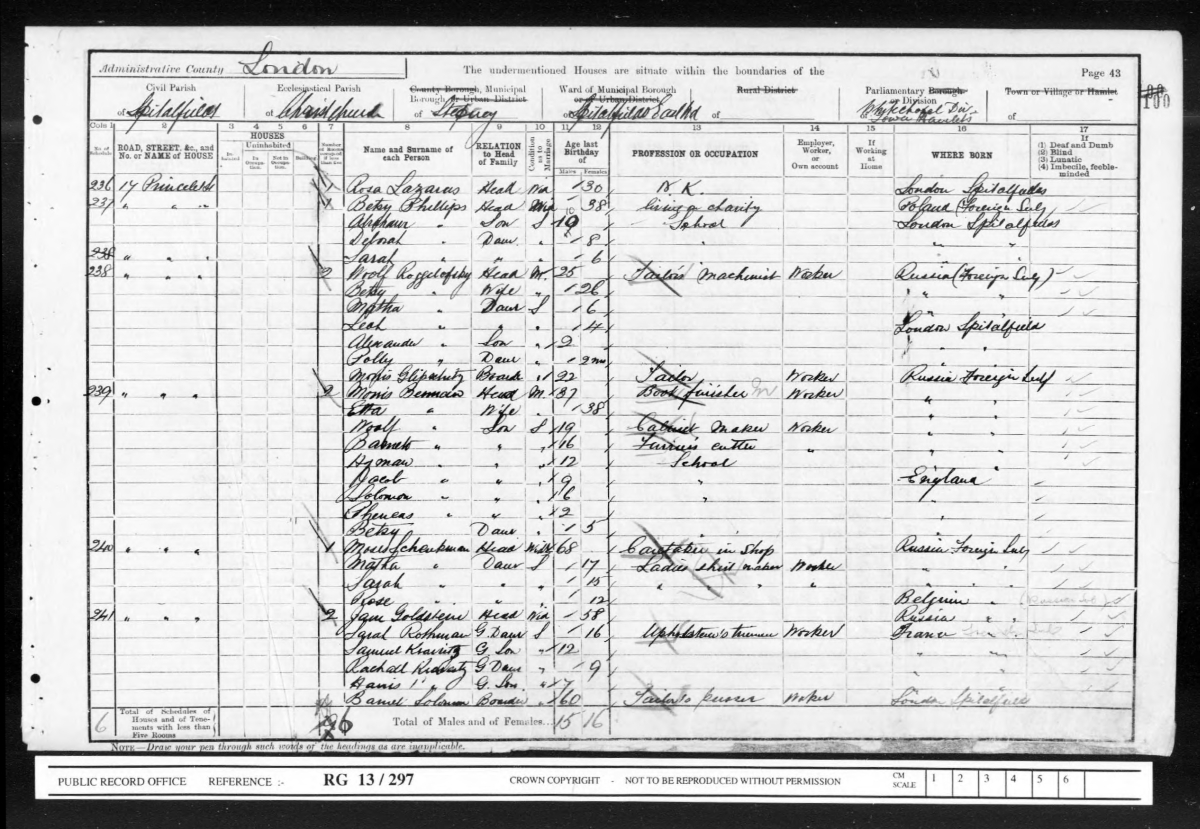 Administrative County London The undermentioned Houses are situate within the boundaries of the Page 43
Civil Parish Ecclesiastical Parish County Borough, Municipal Borough or Urban District Ward of Municipal Borough or of Urban District Rural District Parliamentary Borough or Division Town or Village or Hamlet 100
of Spitalfields of Christchurch of Stepney of Spitalfields East of Whitechapel Div. Tower Hamlets of
Cols. 1 2 3 4 5 6 7 8 9 10 11 12 13 14 15 16 17
No. of Schedule ROAD, STREET, &c., and No. or NAME of HOUSE HOUSES Inhabited Uninhabited In Occupation Not in Occupation Building Number of Rooms occupied if less than five Name and Surname of each Person RELATION to Head of Family Condition as to Marriage Age last Birthday of Males Females PROFESSION OR OCCUPATION Employer, Worker, or Own account If Working at Home WHERE BORN If (1) Deaf and Dumb (2) Blind (3) Lunatic (4) Imbecile, feeble-minded
236 17 Princelet St 1 Rosa Lazarus Head Wid 30 London Spitalfields
237 " " " 1 Betsy Phillips Head Wid 38 living a charity Poland (Foreign Sub)
Abraham " Son S 10 School London Spitalfields
Deborah " Daur " 8 " " "
238 " " " Sarah " " " 6 " "
238 " " " 2 Woolf Head M. 25 Tailor's Machinist Worker Russia (Foreign Sub)
Betsy " Wife " 26 " "
Martha " Daur S 6 " "
Leah " " " 4 London Spitalfield
Alexander " Son " 2 " "
Polly " Daur " 2 " "
Morris Boarder " 22 Tailor Worker Russia Foreign Sub
239 " " " 2 Morris Head M. 37 Boot finisher Worker " "
Etta " Wife " 38 " "
Woolf " Son S 19 Cabinet Maker Worker " "
Barnett " " " 16 Furriers cutter " " "
Hyman " " " 12 School " "
Jacob " " " 9 " England
Solomon " " " 6 " "
Pheneas " " " 2 "
Betsy " Daur " 5 "
240 " " " 1 Moses Schenkman Head Widr 68 in Shop Russia Foreign Sub
Martha " Daur S 17 Ladies skirt maker Worker " "
Sarah " " " 15 " " " " " "
Rose " " " 12 Belgium "
241 " " " 2 Jane Goldstein Head Wid 58 Russia "
Sarah Rothman G. Daur S 16 Upholsterer's trimmer Worker France
Samuel Kravitz G. Son " 12 " "
Rachall Kravitz G. Daur " 9 " "
Harris " G. Son " 7 " "
Barnet Solomon Boarder " 60 Tailor's presser Worker London Spitalfield
6 Total of Schedules of Houses and of Tenements with less than Five Rooms Total of Males and of Females... 15 16
NOTE—Draw your pen through such words of the headings as are inapplicable.
PUBLIC RECORD OFFICE REFERENCE :- RG 13/297 CROWN COPYRIGHT - NOT TO BE REPRODUCED WITHOUT PERMISSION CM SCALE 1 2 3 4 5 6